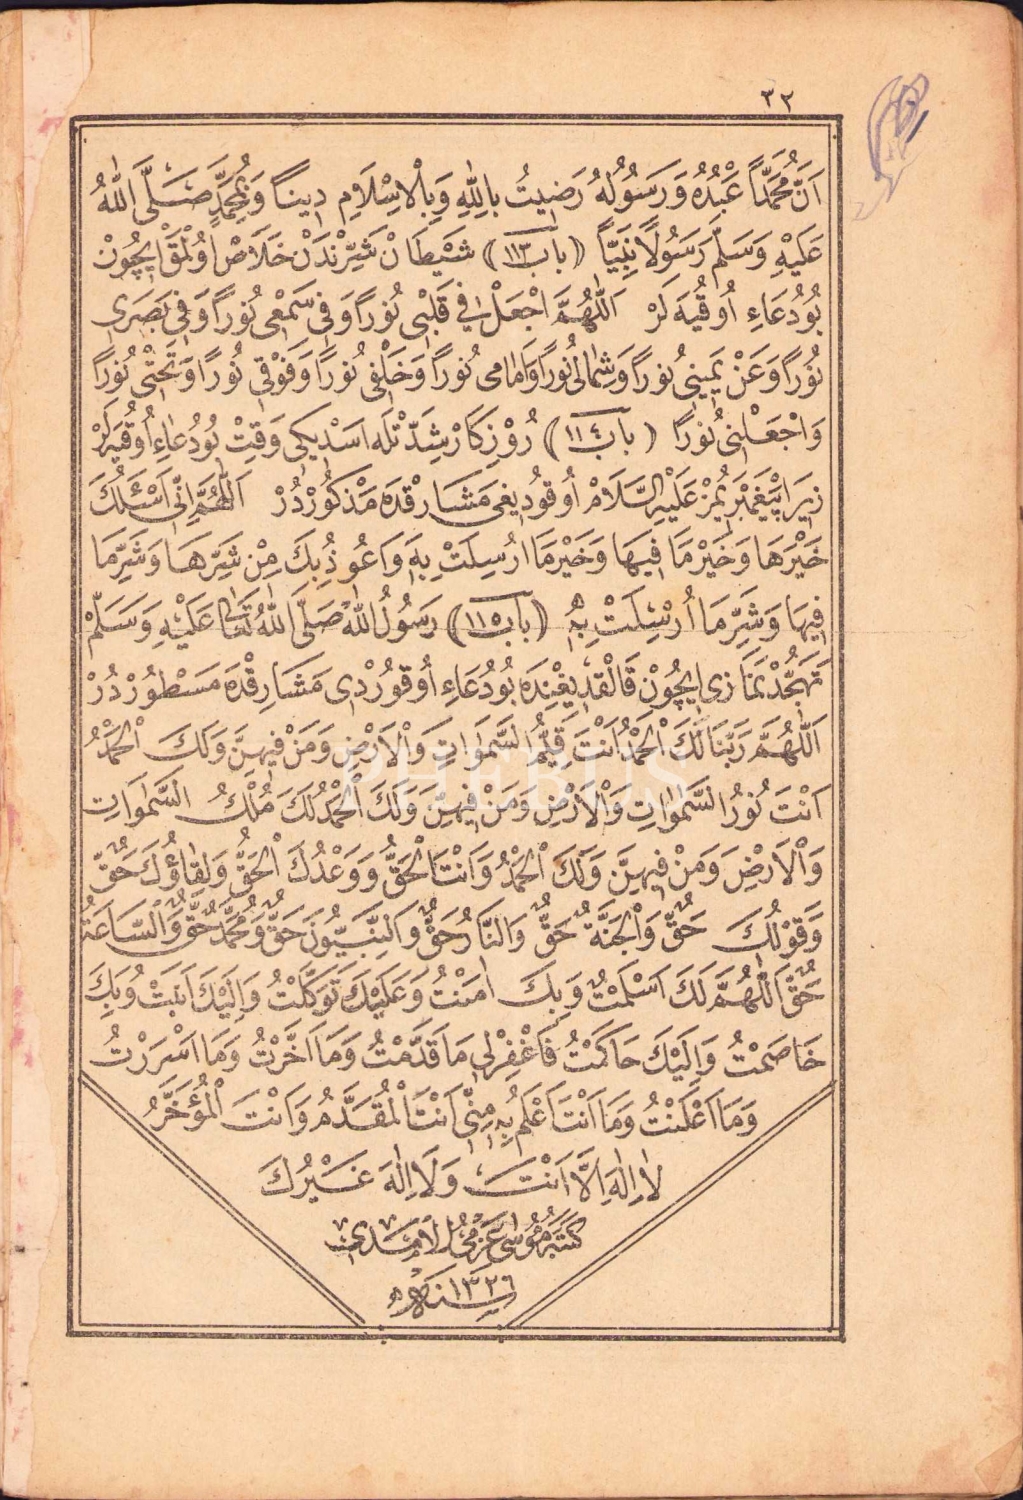 ٣٢
اَنَّ مُحَمَّدًا عَبْدُهُ وَرَسُولُهُ رَضِيتُ بِاللهِ وَبِالْاِسْلَامِ دِينًا وَبِمُحَمَّدٍ صَلَّى اللهُ
عَلَيْهِ وَسَلَّمَ رَسُولًا نَبِيًّا (باب ١١٣) شَيْطَانْ شَرِّنْدَنْ خَلَاصْ اُولْمَقْ اِيچُونْ
بُو دُعَاءِ اُوقُيَه لَرْ اَللّٰهُمَّ اجْعَلْ فِي قَلْبِي نُورًا وَفِي سَمْعِي نُورًا وَفِي بَصَرِي
نُورًا وَعَنْ يَمِينِي نُورًا وَشِمَالِي نُورًا وَاَمَامِي نُورًا وَخَلْفِي نُورًا وَفَوْقِي نُورًا وَتَحْتِي نُورًا
وَاجْعَلْنِي نُورًا (باب ١١٤) رُوزِكَارْ شِدَّتْلَه اَسْدِيكِي وَقِتْ بُو دُعَاءِ اُوقُيَه لَرْ
زِيرَا پَيْغَمْبَرِيمُزْ عَلَيْهِ السَّلَامْ اُوقُودِيغِي مَشَارِقْدَه مَذْكُورْدُرْ اَللّٰهُمَّ اِنِّي اَسْئَلُكَ
خَيْرَهَا وَخَيْرَ مَا فِيهَا وَخَيْرَ مَا اُرْسِلَتْ بِهِ وَاَعُوذُ بِكَ مِنْ شَرِّهَا وَشَرِّ مَا
فِيهَا وَشَرِّ مَا اُرْسِلَتْ بِهِ (باب ١١٥) رَسُولُ اللهِ صَلَّى اللهُ تَعَالٰى عَلَيْهِ وَسَلَّمْ
تَهَجُّدْ نَمَازِى اِيچُونْ قَالْقْدِيغِنْدَه بُو دُعَاءِ اُوقُورْدِى مَشَارِقْدَه مَسْطُورْدُرْ
اَللّٰهُمَّ رَبَّنَا لَكَ الْحَمْدُ اَنْتَ قَيِّمُ السَّمٰوَاتِ وَالْاَرْضِ وَمَنْ فِيهِنَّ وَلَكَ الْحَمْدُ
اَنْتَ نُورُ السَّمٰوَاتِ وَالْاَرْضِ وَمَنْ فِيهِنَّ وَلَكَ الْحَمْدُ لَكَ مُلْكُ السَّمٰوَاتِ
وَالْاَرْضِ وَمَنْ فِيهِنَّ وَلَكَ الْحَمْدُ وَاَنْتَ الْحَقُّ وَوَعْدُكَ الْحَقُّ وَلِقَاؤُكَ حَقٌّ
وَقَوْلُكَ حَقٌّ وَالْجَنَّةُ حَقٌّ وَالنَّارُ حَقٌّ وَالنَّبِيُّونَ حَقٌّ وَمُحَمَّدٌ حَقٌّ وَالسَّاعَةُ
حَقٌّ اَللّٰهُمَّ لَكَ اَسْلَمْتُ وَبِكَ اٰمَنْتُ وَعَلَيْكَ تَوَكَّلْتُ وَاِلَيْكَ اَنَبْتُ وَبِكَ
خَاصَمْتُ وَاِلَيْكَ حَاكَمْتُ فَاغْفِرْلِي مَا قَدَّمْتُ وَمَا اَخَّرْتُ وَمَا اَسْرَرْتُ
وَمَا اَعْلَنْتُ وَمَا اَنْتَ اَعْلَمُ بِهِ مِنِّي اَنْتَ الْمُقَدَّمُ وَاَنْتَ الْمُؤَخَّرُ
لَا اِلٰهَ اِلَّا اَنْتَ وَلَا اِلٰهَ غَيْرُكَ
كَتَبَهُ مُوسٰى عَزْمِي الْآمِدِي
سنه ١٣٢٦
PHEBUS